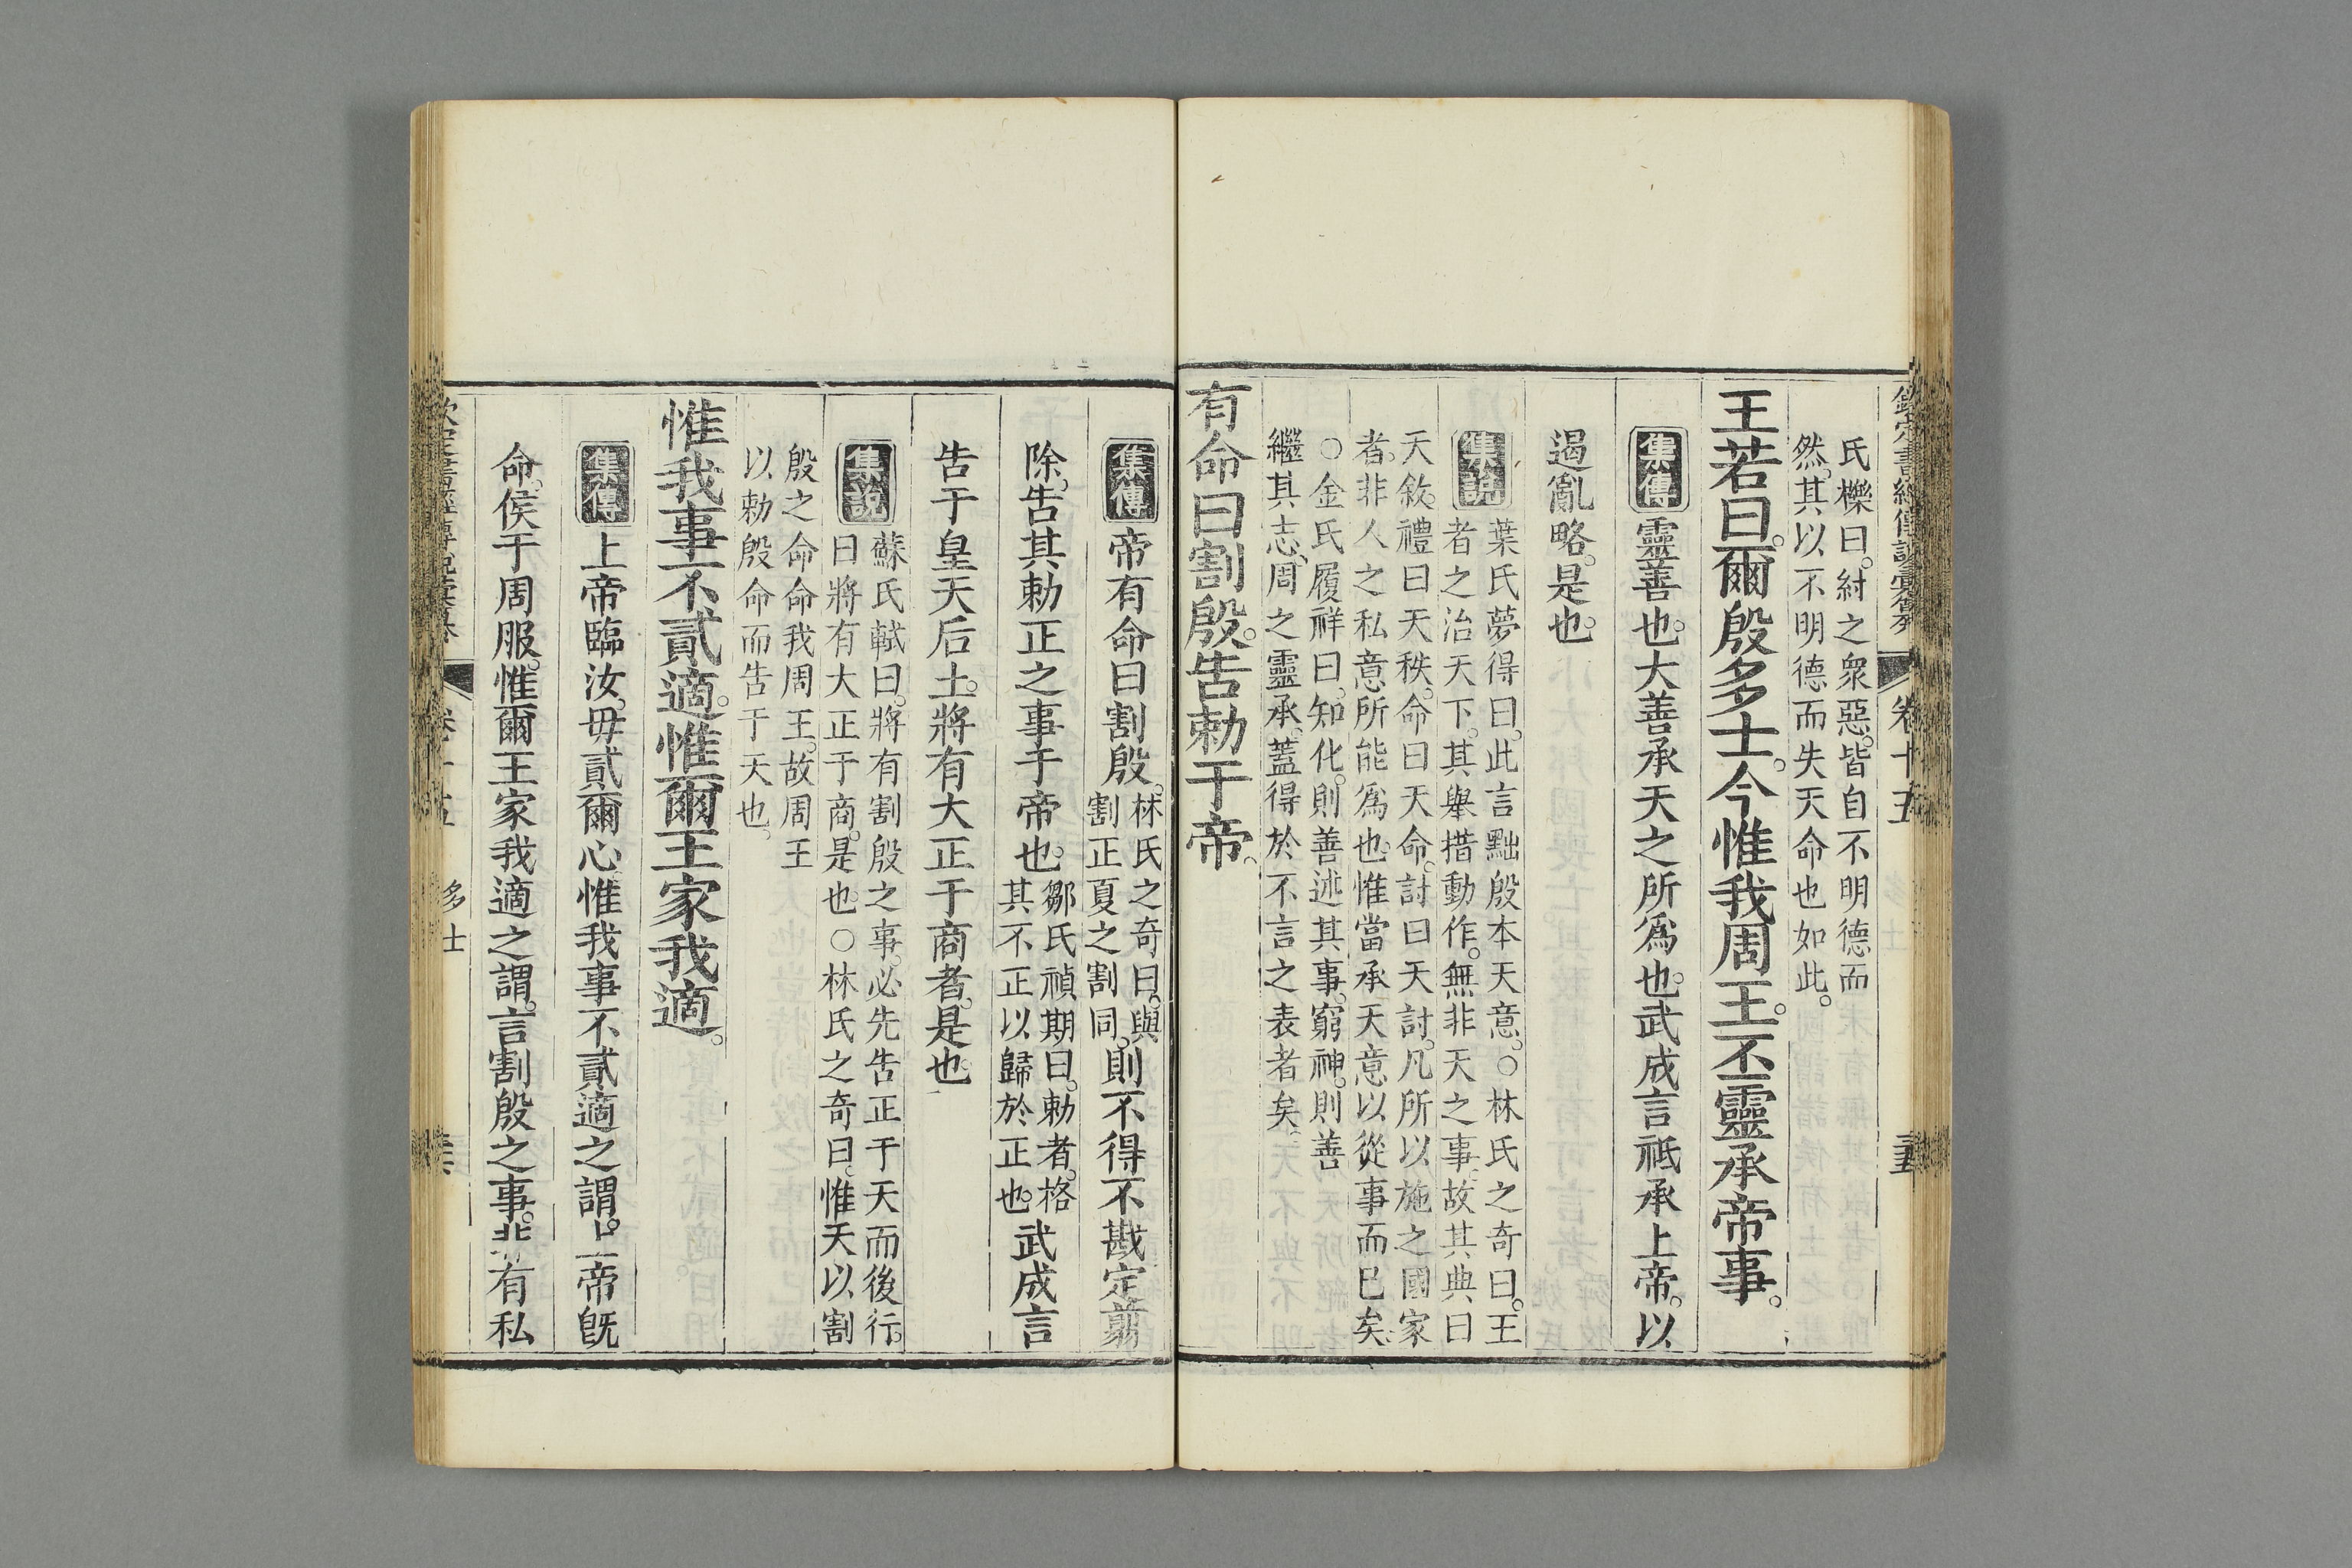 欽定書經傳說彙纂 卷十五
氏櫟曰。紂之衆惡。皆自不明德而
然。其以不明德而失天命也如此。
王若曰。爾殷多士。今惟我周王。丕靈承帝事。
集傳 靈善也。大善承天之所爲也。武成言祗承上帝。以
遏亂略。是也。
集說 葉氏夢得曰。此言黜殷本天意。○林氏之奇曰。王
者之治天下。其舉措動作。無非天之事。故其典曰
天敘。禮曰天秩。命曰天命。討曰天討。凡所以施之國家
者。非人之私意所能爲也。惟當承天意以從事而巳矣。
○金氏履祥曰。知化。則善述其事。窮神。則善
繼其志。周之靈承。蓋得於不言之表者矣。
有命曰割殷。告勅于帝。
集傳 帝有命曰割殷。林氏之奇曰。與
割正夏之割同。則不得不戡定翦
除。告其勅正之事于帝也。鄒氏禎期曰。勅者。格
其不正以歸於正也。武成言
告于皇天后土。將有大正于商者。是也。
集說 蘇氏軾曰。將有割殷之事。必先告正于天而後行。
曰將有大正于商。是也。○林氏之奇曰。惟天以割
殷之命命我周王。故周王
以勅殷命而告于天也。
惟我事不貳適。惟爾王家我適。
集傳 上帝臨汝。毋貳爾心。惟我事不貳適之謂。上帝旣
命。侯于周服。惟爾王家我適之謂。言割殷之事。非有私
多士